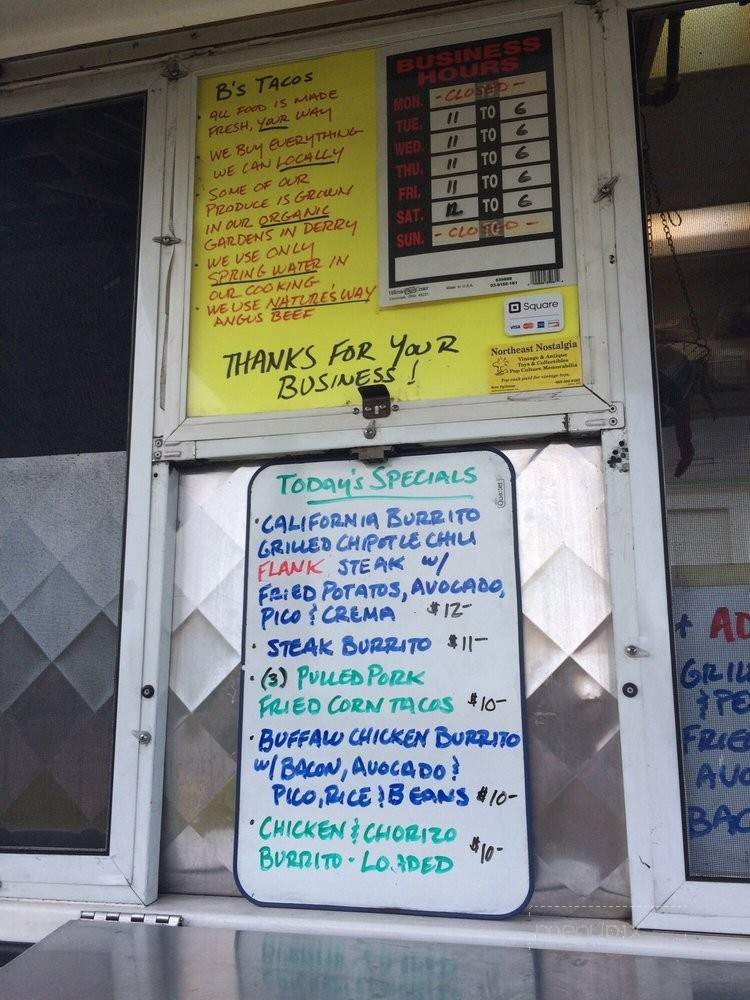 B's TACOS
· ALL FOOD IS MADE
FRESH, YOUR WAY
· WE BUY EVERYTHING
WE CAN LOCALLY
· SOME OF OUR
PRODUCE IS GROWN
IN OUR ORGANIC
GARDENS IN DERRY
· WE USE ONLY
SPRING WATER IN
OUR COOKING
· WE USE NATURE'S WAY
ANGUS BEEF
THANKS FOR YOUR
BUSINESS!
BUSINESS
HOURS
MON. -CLOSED-
TUE. 11 TO 6
WED. 11 TO 6
THU. 11 TO 6
FRI. 11 TO 6
SAT. 12 TO 6
SUN. -CLOSED-
Square
VISA
Northeast Nostalgia
Vintage & Antique
Toys & Collectibles
Pop Culture Memorabilia
Top cash paid for vintage toys.
TODAY'S SPECIALS
Quartet
· CALIFORNIA BURRITO
GRILLED CHIPOTLE CHILI
FLANK STEAK W/
FRIED POTATOS, AVOCADO,
PICO & CREMA $12-
· STEAK BURRITO $11-
· (3) PULLED PORK
FRIED CORN TACOS $10-
· BUFFALO CHICKEN BURRITO
W/ BACON, AVOCADO &
PICO, RICE & BEANS $10-
· CHICKEN & CHORIZO
BURRITO - LOADED $10-
+ AD
GRIL
& PE
FRIE
AVO
BAC
menupix